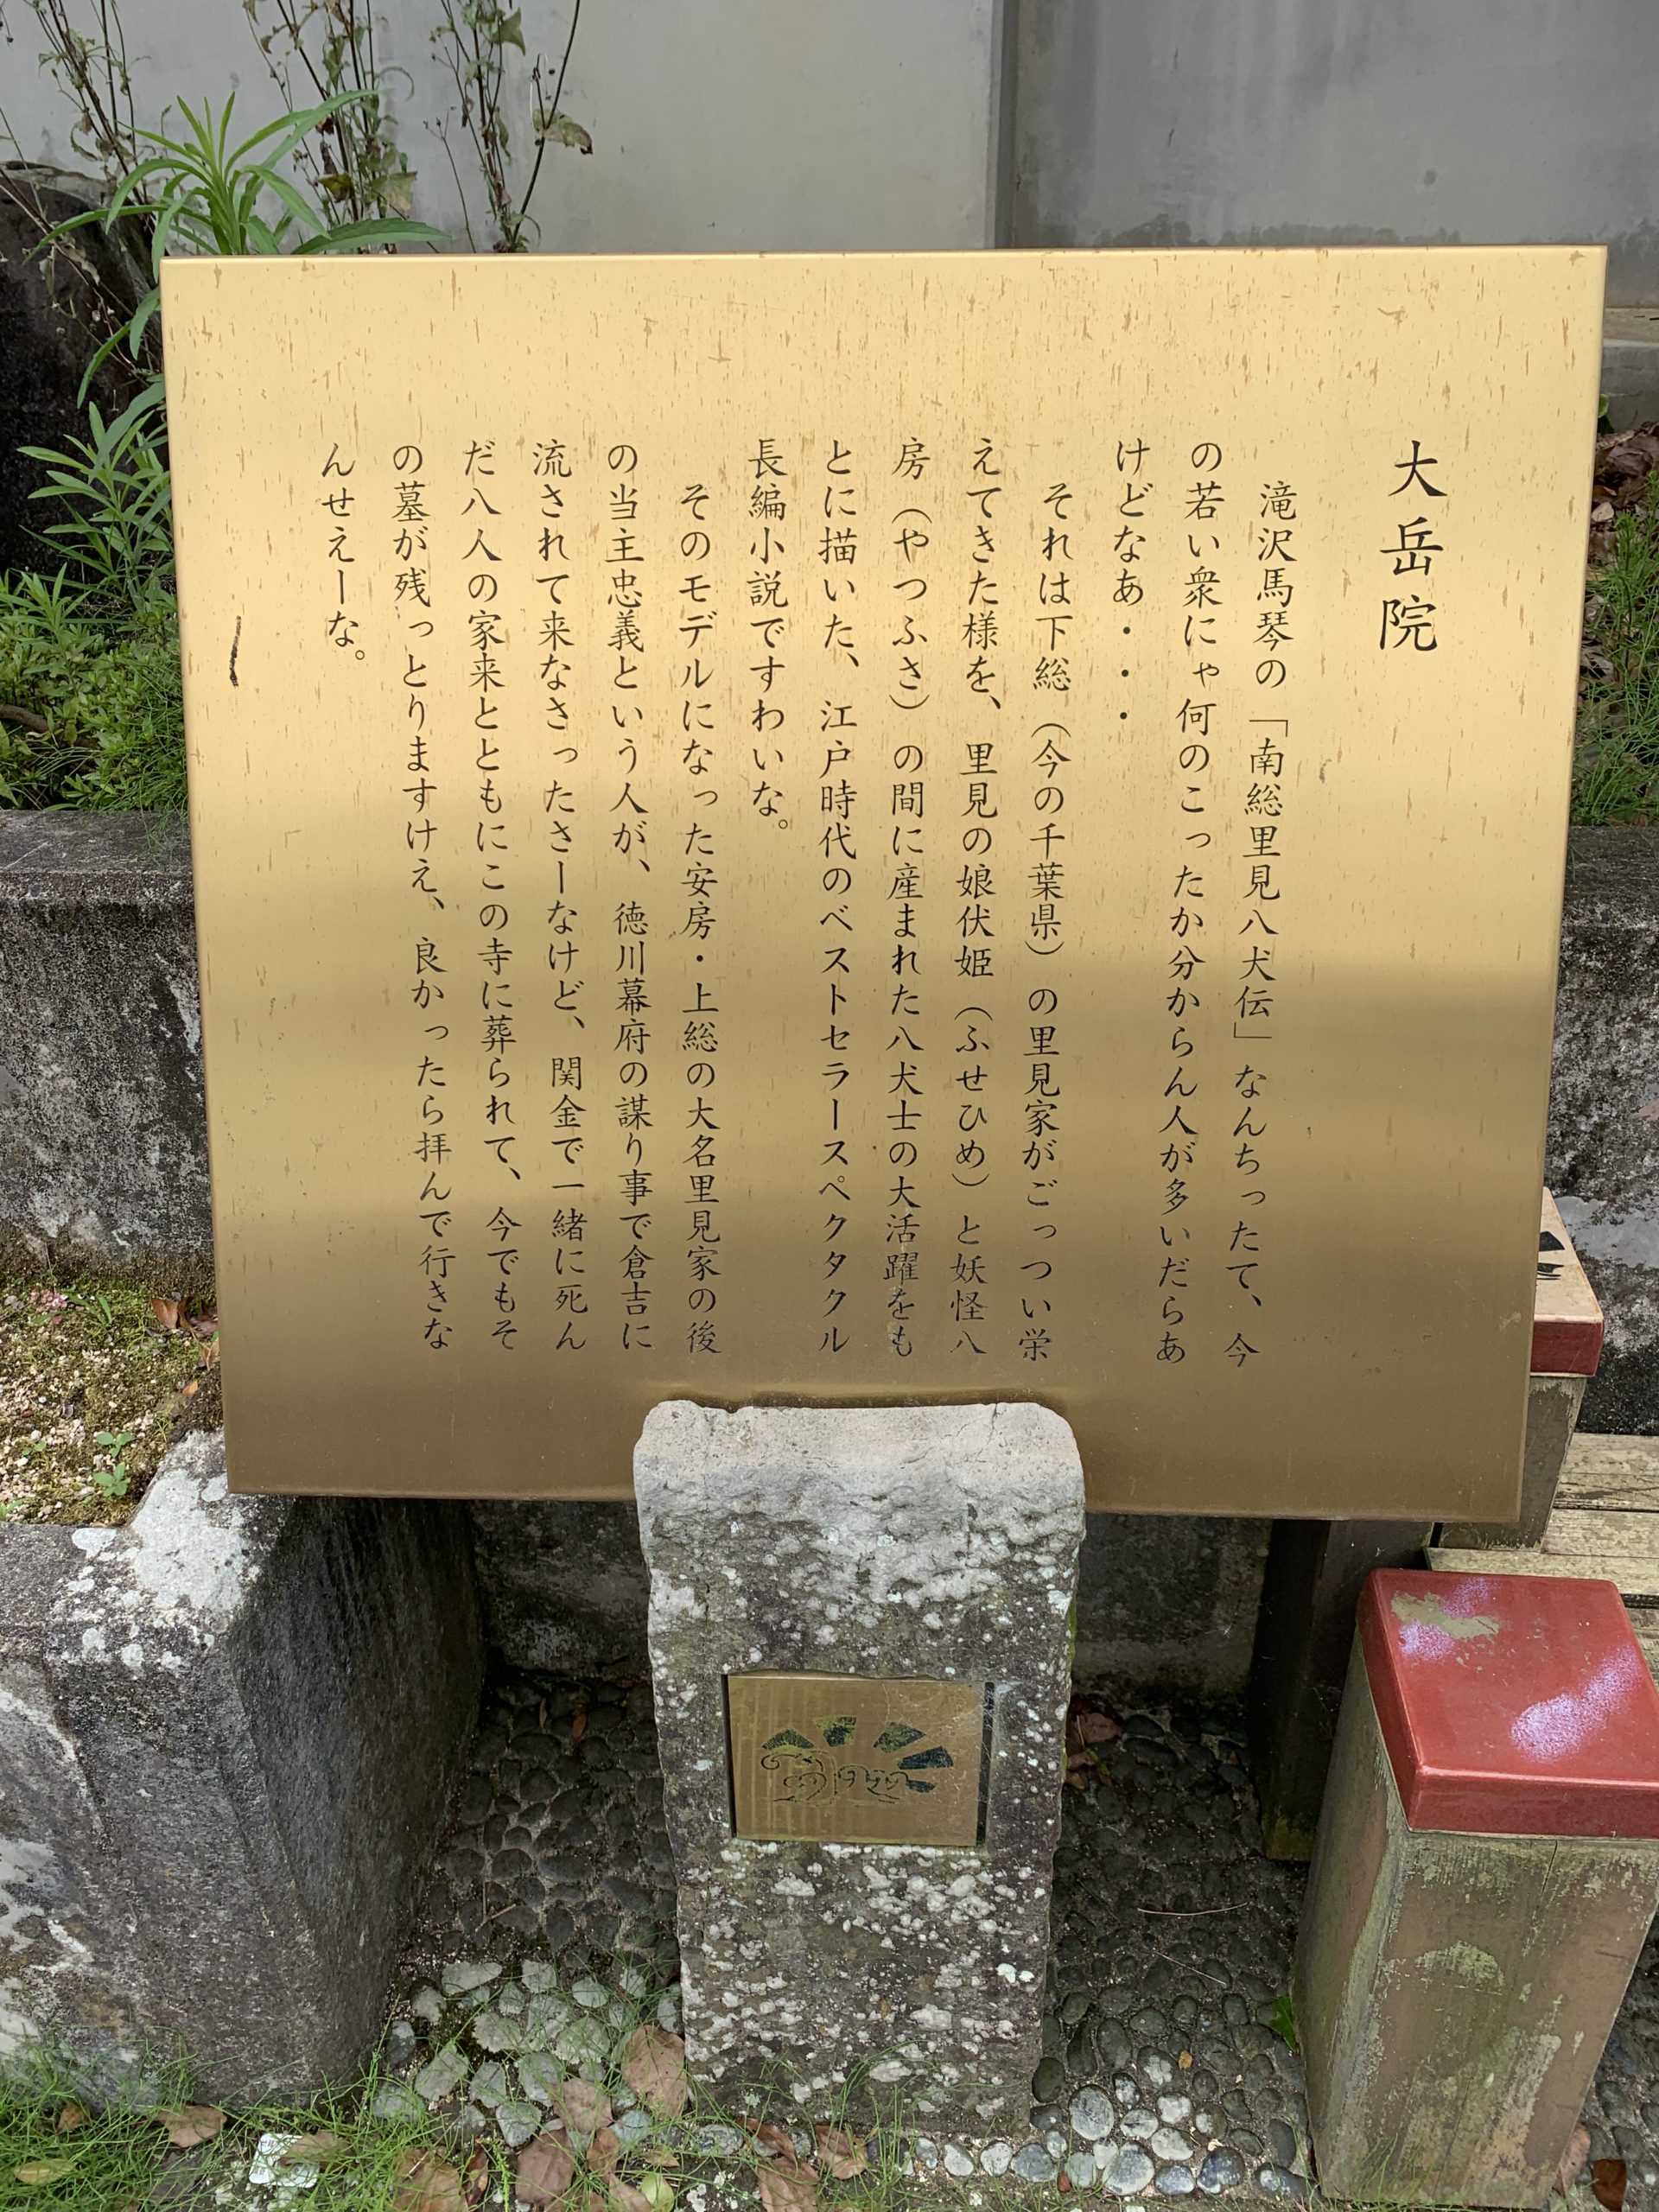 大岳院
滝沢馬琴の「南総里見八犬伝」なんちったて、今
の若い衆にゃ何のこったか分からん人が多いだらあ
けどなあ・・・
それは下総（今の千葉県）の里見家がごっつい栄
えてきた様を、里見の娘伏姫（ふせひめ）と妖怪八
房（やつふさ）の間に産まれた八犬士の大活躍をも
とに描いた、江戸時代のベストセラースペクタクル
長編小説ですわいな。
そのモデルになった安房・上総の大名里見家の後
の当主忠義という人が、徳川幕府の謀り事で倉吉に
流されて来なさったさーなけど、関金で一緒に死ん
だ八人の家来とともにこの寺に葬られて、今でもそ
の墓が残っとりますけえ、良かったら拝んで行きな
んせえーな。